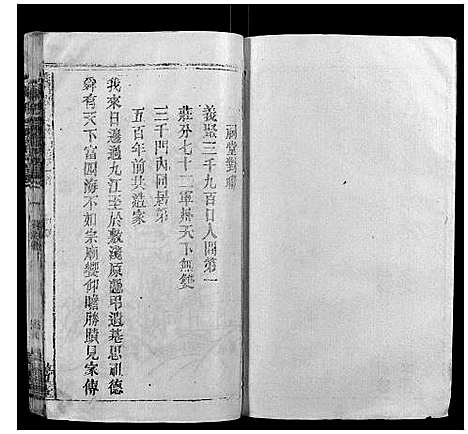 祠堂對聯
義聚三千九百口人間第一
莊分七十二軍州天下無雙
三千門內同居第
五百年前共造家
我來日邊過九江至於敷淺原憑弔遺基思祖德
舜有天下富四海不如宗廟饗仰瞻勝蹟見家傳